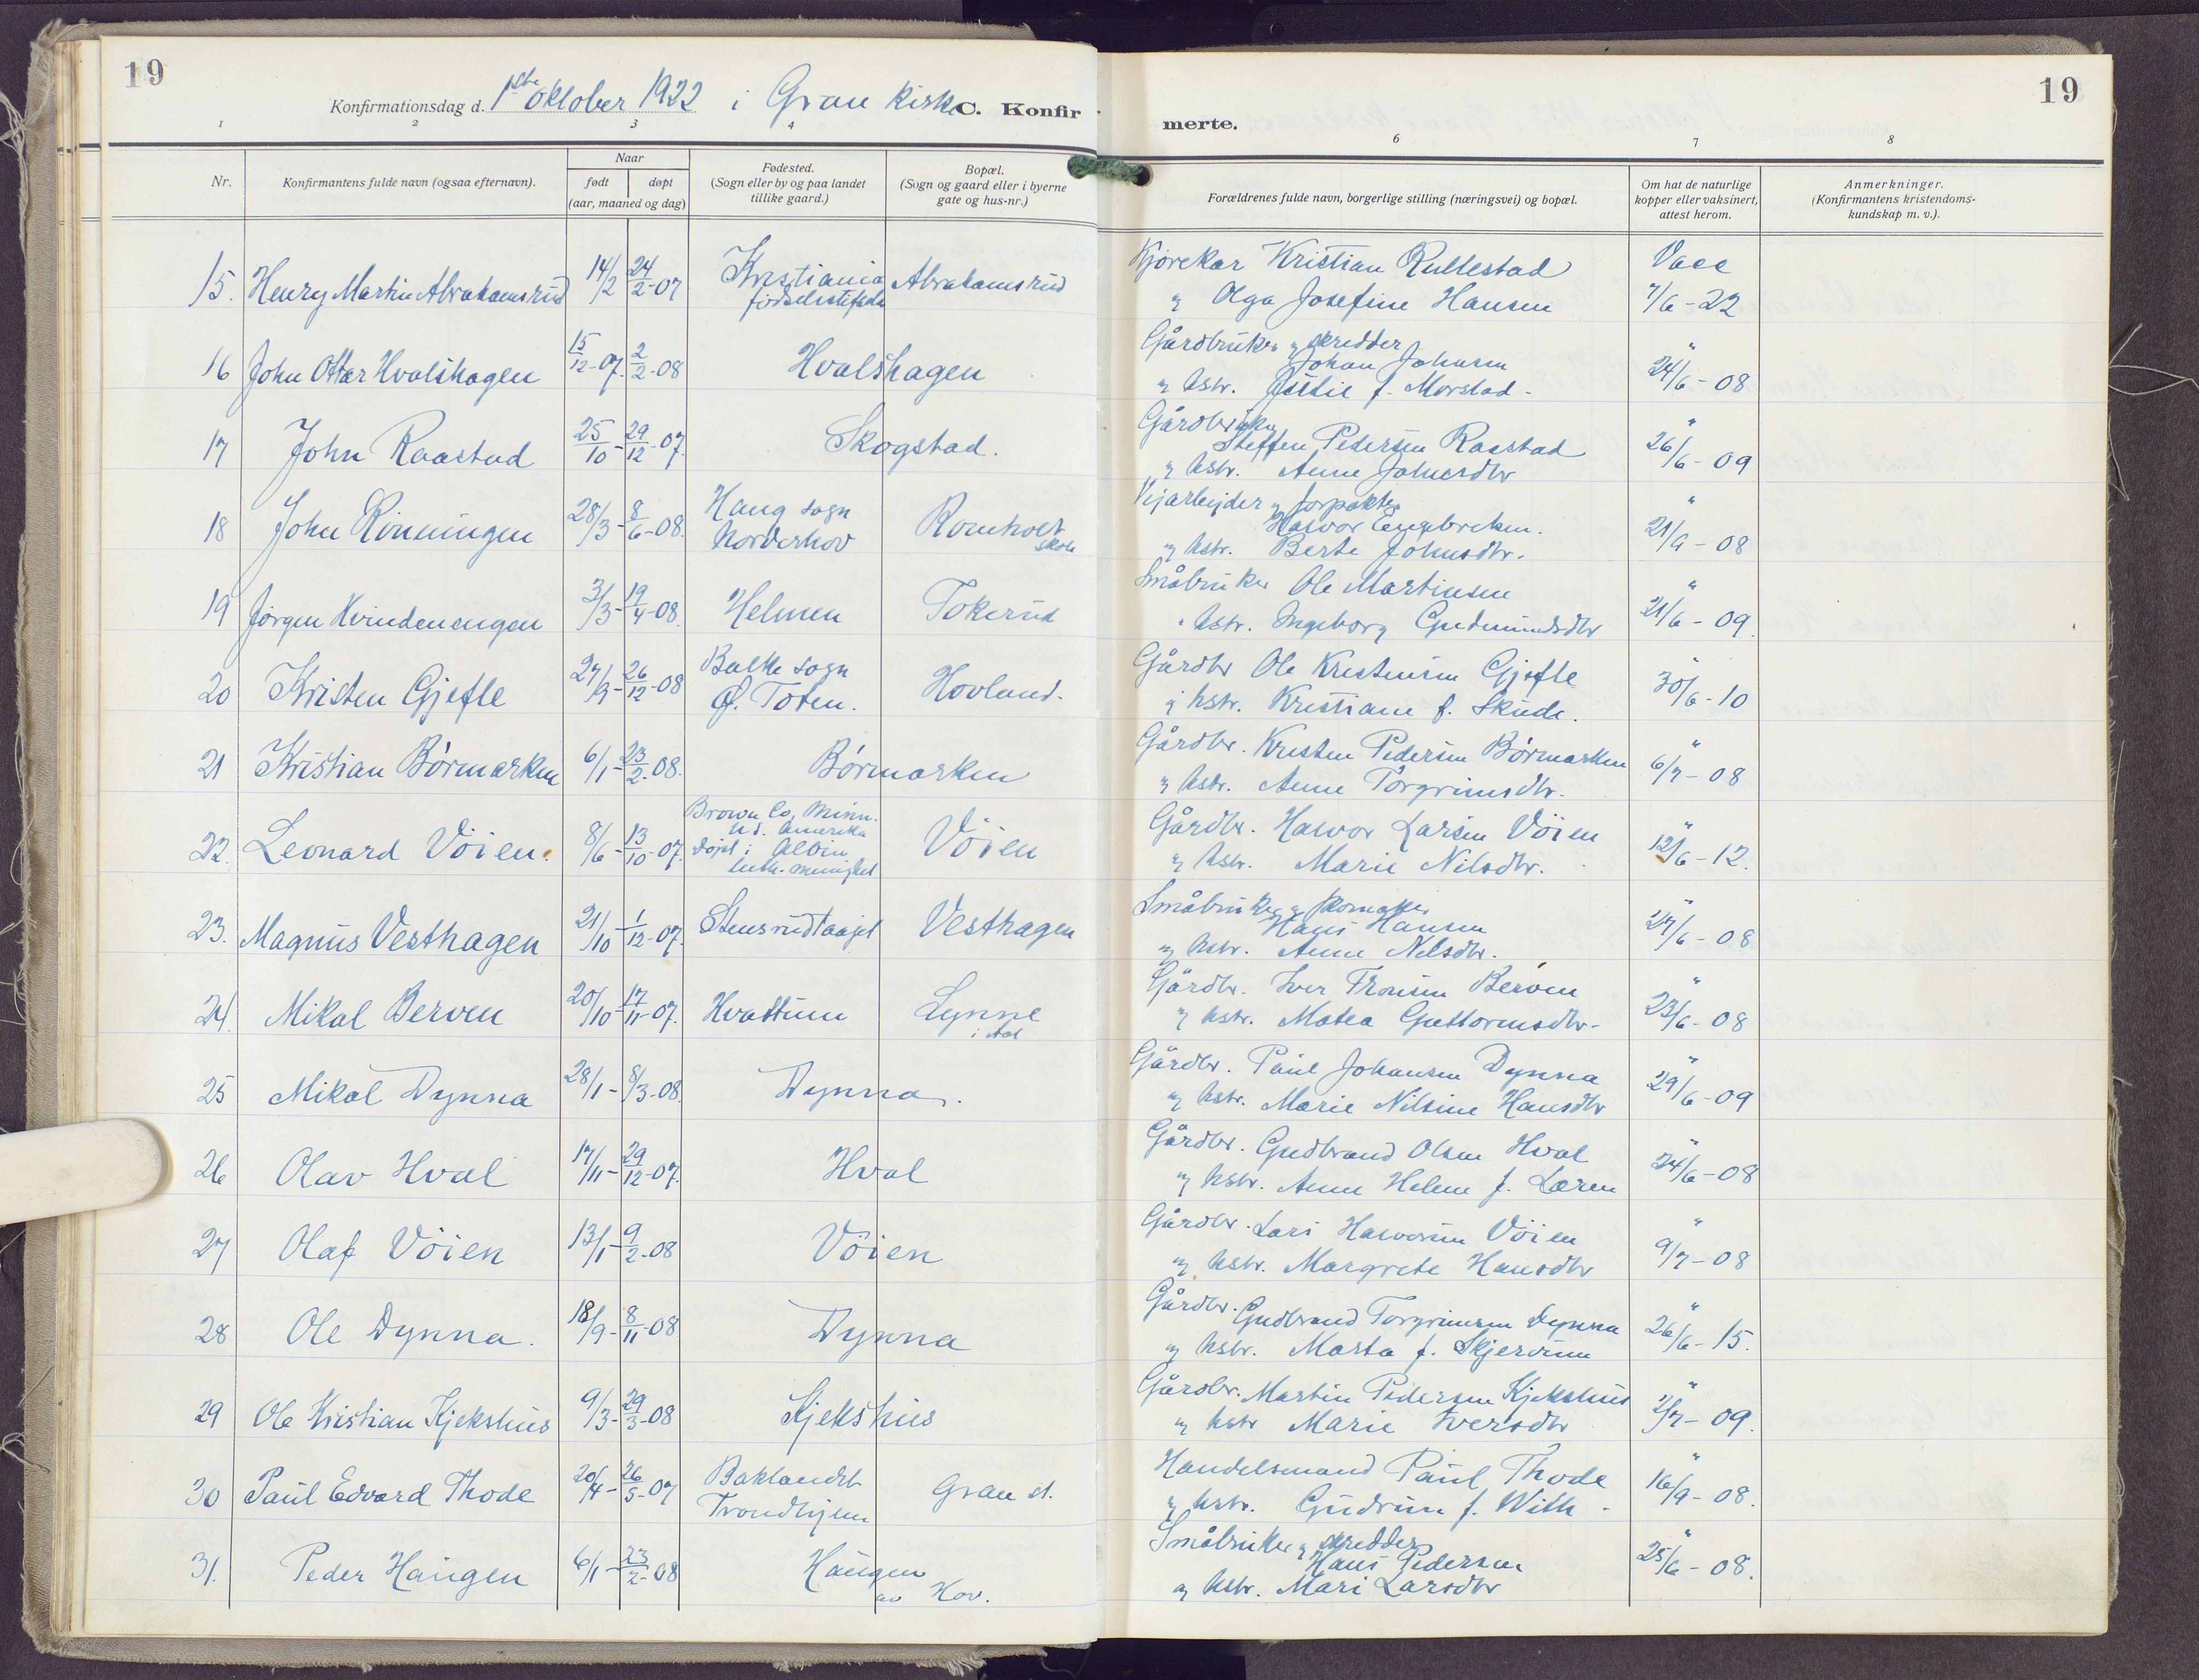 19
19
Konfirmationsdag d. 1ste oktober 1922 i Gran kirke C. Konfir-
merte.
1 2 3 4 6 7 8
Nr.
Konfirmantens fulde navn (ogsaa efternavn).
Naar
født
døpt
(aar, maaned og dag)
Fødested.
(Sogn eller by og paa landet
tillike gaard.)
Bopæl.
(Sogn og gaard eller i byerne
gate og hus-nr.)
Forældrenes fulde navn, borgerlige stilling (næringsvei) og bopæl.
Om hat de naturlige
kopper eller vaksinert,
attest herom.
Anmerkninger.
(Konfirmantens kristendoms-
kundskap m. v.).
15. Henry Martin Abrahamsrud 14/2 24/2-07 Kristiania Abrahamsrud Kjørekar Kristian Rullestad Vacc
og Olga Josefine Hansen 7/6-22
16 John Ottar Hvalshagen 15/12-07. 2/2-08 Hvalshagen Gårdbruker og skredder
Johan Johnsen " 24/6-08
og hstr. f. Morstad-
17 John Raastad 25/10- 29/12-07. Skogstad. Gårdbruker
Steffen Pedersen Raastad " 26/6-09
og hstr. Anne Johnsdtr
18 John Rönningen 28/3- 8/6-08. Haug sogn
Norderhov
skole Veiarbeider og forpakter
Halvor Engebretsen. " 21/9-08
og hstr. Berte Johnsdtr.
19 Jörgen Kvindenengen 3/3- 19/4-08. Helmen Tokerud Småbruker Ole Martinsen " 21/6-09.
" hstr. Ingeborg Gudmundsdtr
20 Kristen Gjefle 27/9- 26/12-08 Balke sogn
Ø. Toten. Hovland. Gårdbr Ole Kristensen Gjefle " 30/6-10
og hstr. Kristiane f. Skude.
21 Kristian Börmarken 6/1- 23/2-08. Börmarken Gårdbr. Kristen Pedersen Börmarken " 6/7-08
og hstr. Anne Torgrimsdtr.
22. Leonard Vöien. 8/6- 13/10-07. Brown Co, Minn.
N. Amerika
døpt i Albin
luth. menighet Vöien Gårdbr. Halvor Larsen Vöien " 12/6-12.
og hstr. Marie Nilsdtr.
23. Magnus Vesthagen 21/10- 1/12-07. Vesthagen Småbruker og skomaker
Hans Hansen " 27/6-08
og hstr. Anne Nelsdtr.
24. Mikal Berven 20/10- 17/11-07. Hvattum Lynne
Gårdbr. Iver Berven " 23/6-08
og hstr. Matea Guttormsdtr-
25 Mikal Dynna 28/1- 8/3-08. Dynna. Gårdbr. Paul Johansen Dynna " 29/6-09
og hstr. Marie Nilsine Hansdtr
26 Olav Hval 17/11- 29/12-07. Hval Gårdbr. Gudbrand Olsen Hval " 24/6-08
og hstr. Anne Helene f. Læren
27 Olaf Vöien 13/1- 9/2-08 Vöien Gårdbr. Lars Halvorsen Vöien " 9/7-08
og hstr. Margrete Hansdtr
28 Ole Dynna. 18/9- 8/11-08 Dynna Gårdbr. Gudbrand Torgrimsen Dynna " 26/6-15.
og hstr. Marta f. Skjervum
29 Ole Kristian Kjekshus 9/3- 29/3-08 Kjekshus Gårdbr. Martin Pedersen Kjekshus " 2/7-09.
og hstr Marie Iversdtr
30 Paul Edvard Thode 20/4- 26/5-07 Baklandet
Trondhjem Gran st. Handelsmand Paul Thode " 16/9-08.
og hstr. Gudrun f. With-
31. Peder Haugen 6/1- 23/2-08 Haugen
av Hov. Småbruker og skredder
Hans Pedersen " 25/6-08.
og hstr. Mari Larsdtr